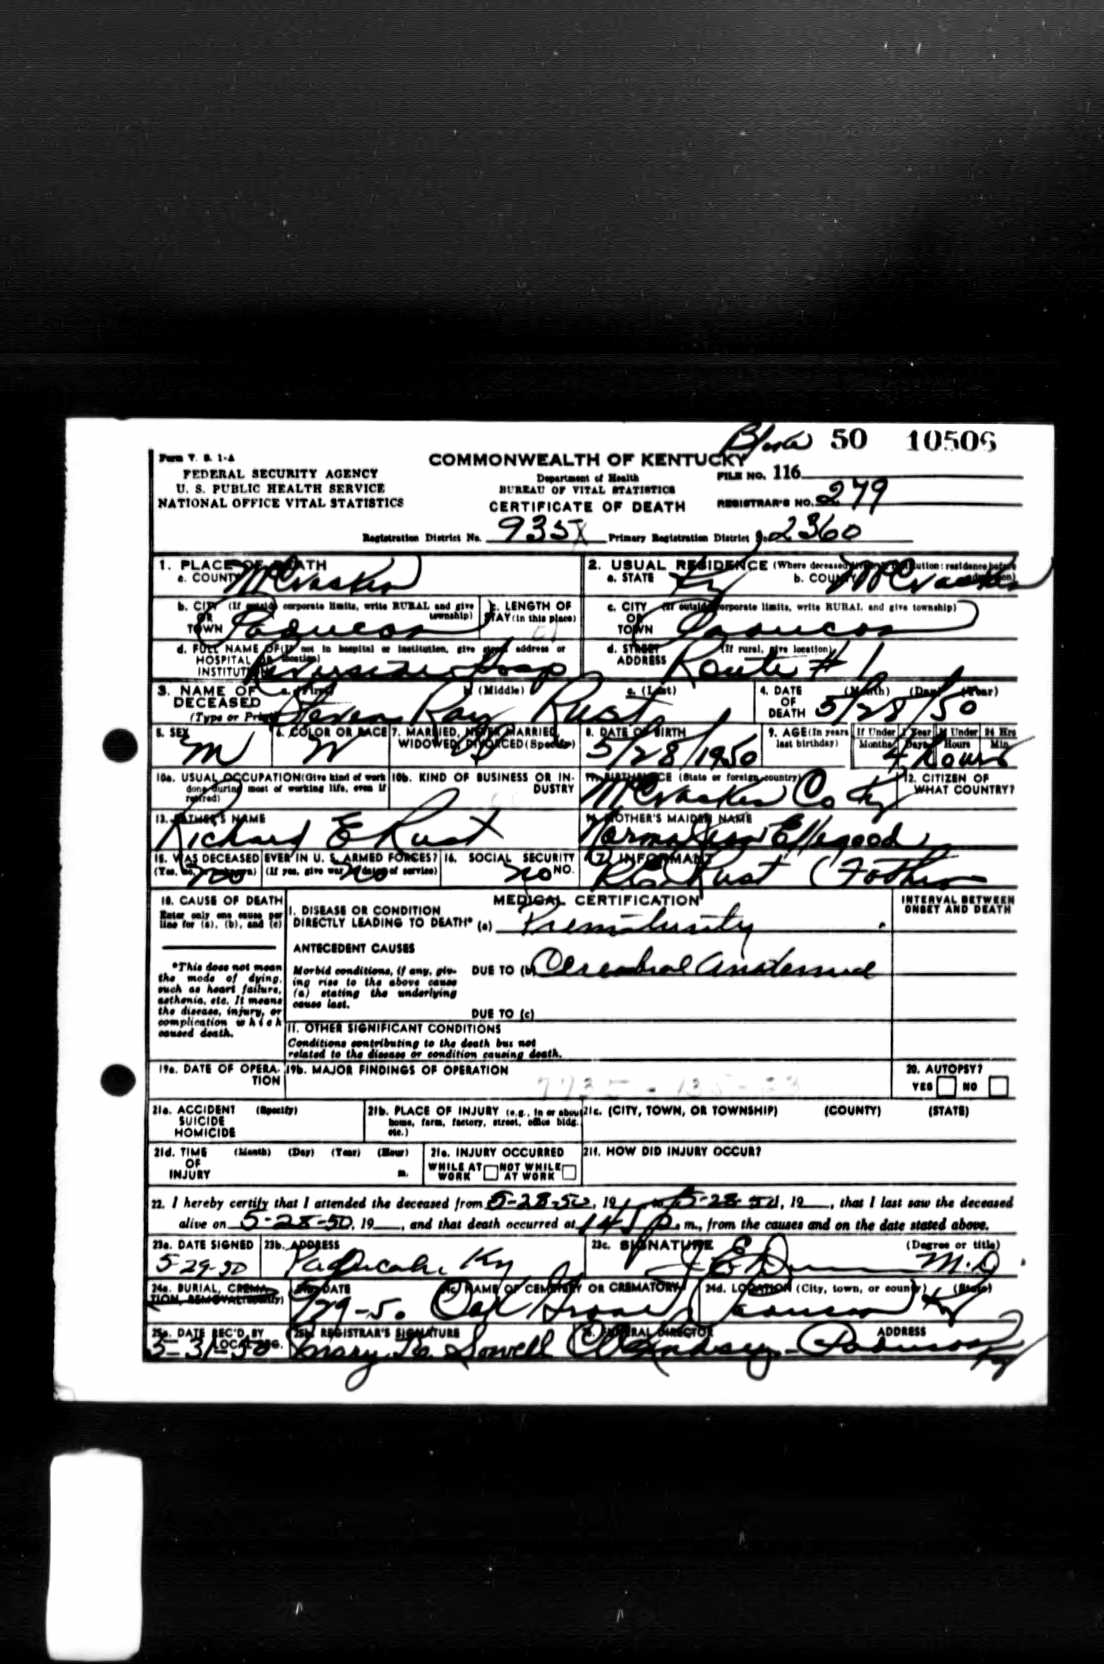 50 10506
Form V. S. 1-A
FEDERAL SECURITY AGENCY
U. S. PUBLIC HEALTH SERVICE
NATIONAL OFFICE VITAL STATISTICS
COMMONWEALTH OF KENTUCKY
Department of Health
BUREAU OF VITAL STATISTICS
CERTIFICATE OF DEATH
FILE NO. 116
REGISTRAR'S NO. 279
Registration District No. 935 Primary Registration District No. 2360
1. PLACE OF DEATH
a. COUNTY McCracken
2. USUAL RESIDENCE (Where deceased lived. If institution: residence before admission)
a. STATE Ky b. COUNTY McCracken
b. CITY (If outside corporate limits, write RURAL and give township) OR TOWN Paducah
c. LENGTH OF STAY (in this place)
c. CITY (If outside corporate limits, write RURAL and give township) OR TOWN Paducah
d. FULL NAME OF (If not in hospital or institution, give street address or location) HOSPITAL OR INSTITUTION Riverside Hosp
d. STREET ADDRESS (If rural, give location) Route #1
3. NAME OF DECEASED (Type or Print) a. (First) b. (Middle) c. (Last)
Steven Ray Rust
4. DATE OF DEATH (Month) (Day) (Year) 5/28/50
5. SEX M
6. COLOR OR RACE W
7. MARRIED, NEVER MARRIED, WIDOWED, DIVORCED (Specify)
8. DATE OF BIRTH 5/28/1950
9. AGE (In years last birthday) If Under 1 Year Months Days If Under 24 Hrs Hours Min.
4 Hours
10a. USUAL OCCUPATION (Give kind of work done during most of working life, even if retired)
10b. KIND OF BUSINESS OR INDUSTRY
11. BIRTHPLACE (State or foreign country) McCracken Co Ky
12. CITIZEN OF WHAT COUNTRY?
13. FATHER'S NAME Richard E Rust
14. MOTHER'S MAIDEN NAME Norma Jean Ellegood
15. WAS DECEASED EVER IN U. S. ARMED FORCES? (Yes, no, or unknown) (If yes, give war or dates of service)
no no
16. SOCIAL SECURITY NO. no
17. INFORMANT R.E. Rust (Father
18. CAUSE OF DEATH
Enter only one cause per line for (a), (b), and (c)
MEDICAL CERTIFICATION
INTERVAL BETWEEN ONSET AND DEATH
I. DISEASE OR CONDITION DIRECTLY LEADING TO DEATH* (a) Prematurity
*This does not mean the mode of dying, such as heart failure, asthenia, etc. It means the disease, injury, or complication which caused death.
ANTECEDENT CAUSES
Morbid conditions, if any, giving rise to the above cause (a) stating the underlying cause last.
DUE TO (b) Cerebral
DUE TO (c)
II. OTHER SIGNIFICANT CONDITIONS
Conditions contributing to the death but not related to the disease or condition causing death.
19a. DATE OF OPERATION
19b. MAJOR FINDINGS OF OPERATION
20. AUTOPSY?
YES NO
21a. ACCIDENT (Specify) SUICIDE HOMICIDE
21b. PLACE OF INJURY (e.g., in or about home, farm, factory, street, office bldg. etc.)
21c. (CITY, TOWN, OR TOWNSHIP) (COUNTY) (STATE)
21d. TIME OF INJURY (Month) (Day) (Year) (Hour) m.
21e. INJURY OCCURRED
WHILE AT WORK NOT WHILE AT WORK
21f. HOW DID INJURY OCCUR?
22. I hereby certify that I attended the deceased from 5-28-50, 19 to 5-28-50, 19, that I last saw the deceased
alive on 5-28-50, 19, and that death occurred at 145 p. m., from the causes and on the date stated above.
23a. DATE SIGNED 5-29-50
23b. ADDRESS Paducah Ky
23c. SIGNATURE (Degree or title) M.D.
24a. BURIAL, CREMATION, REMOVAL (Specify)
24b. DATE
24c. NAME OF CEMETERY OR CREMATORY Oak Grove
24d. LOCATION (City, town, or county) (State) Paducah Ky
25a. DATE REC'D BY LOCAL REG. 5-31-50
25b. REGISTRAR'S SIGNATURE Mary La Sowell
26. FUNERAL DIRECTOR Lindsey ADDRESS Paducah Ky